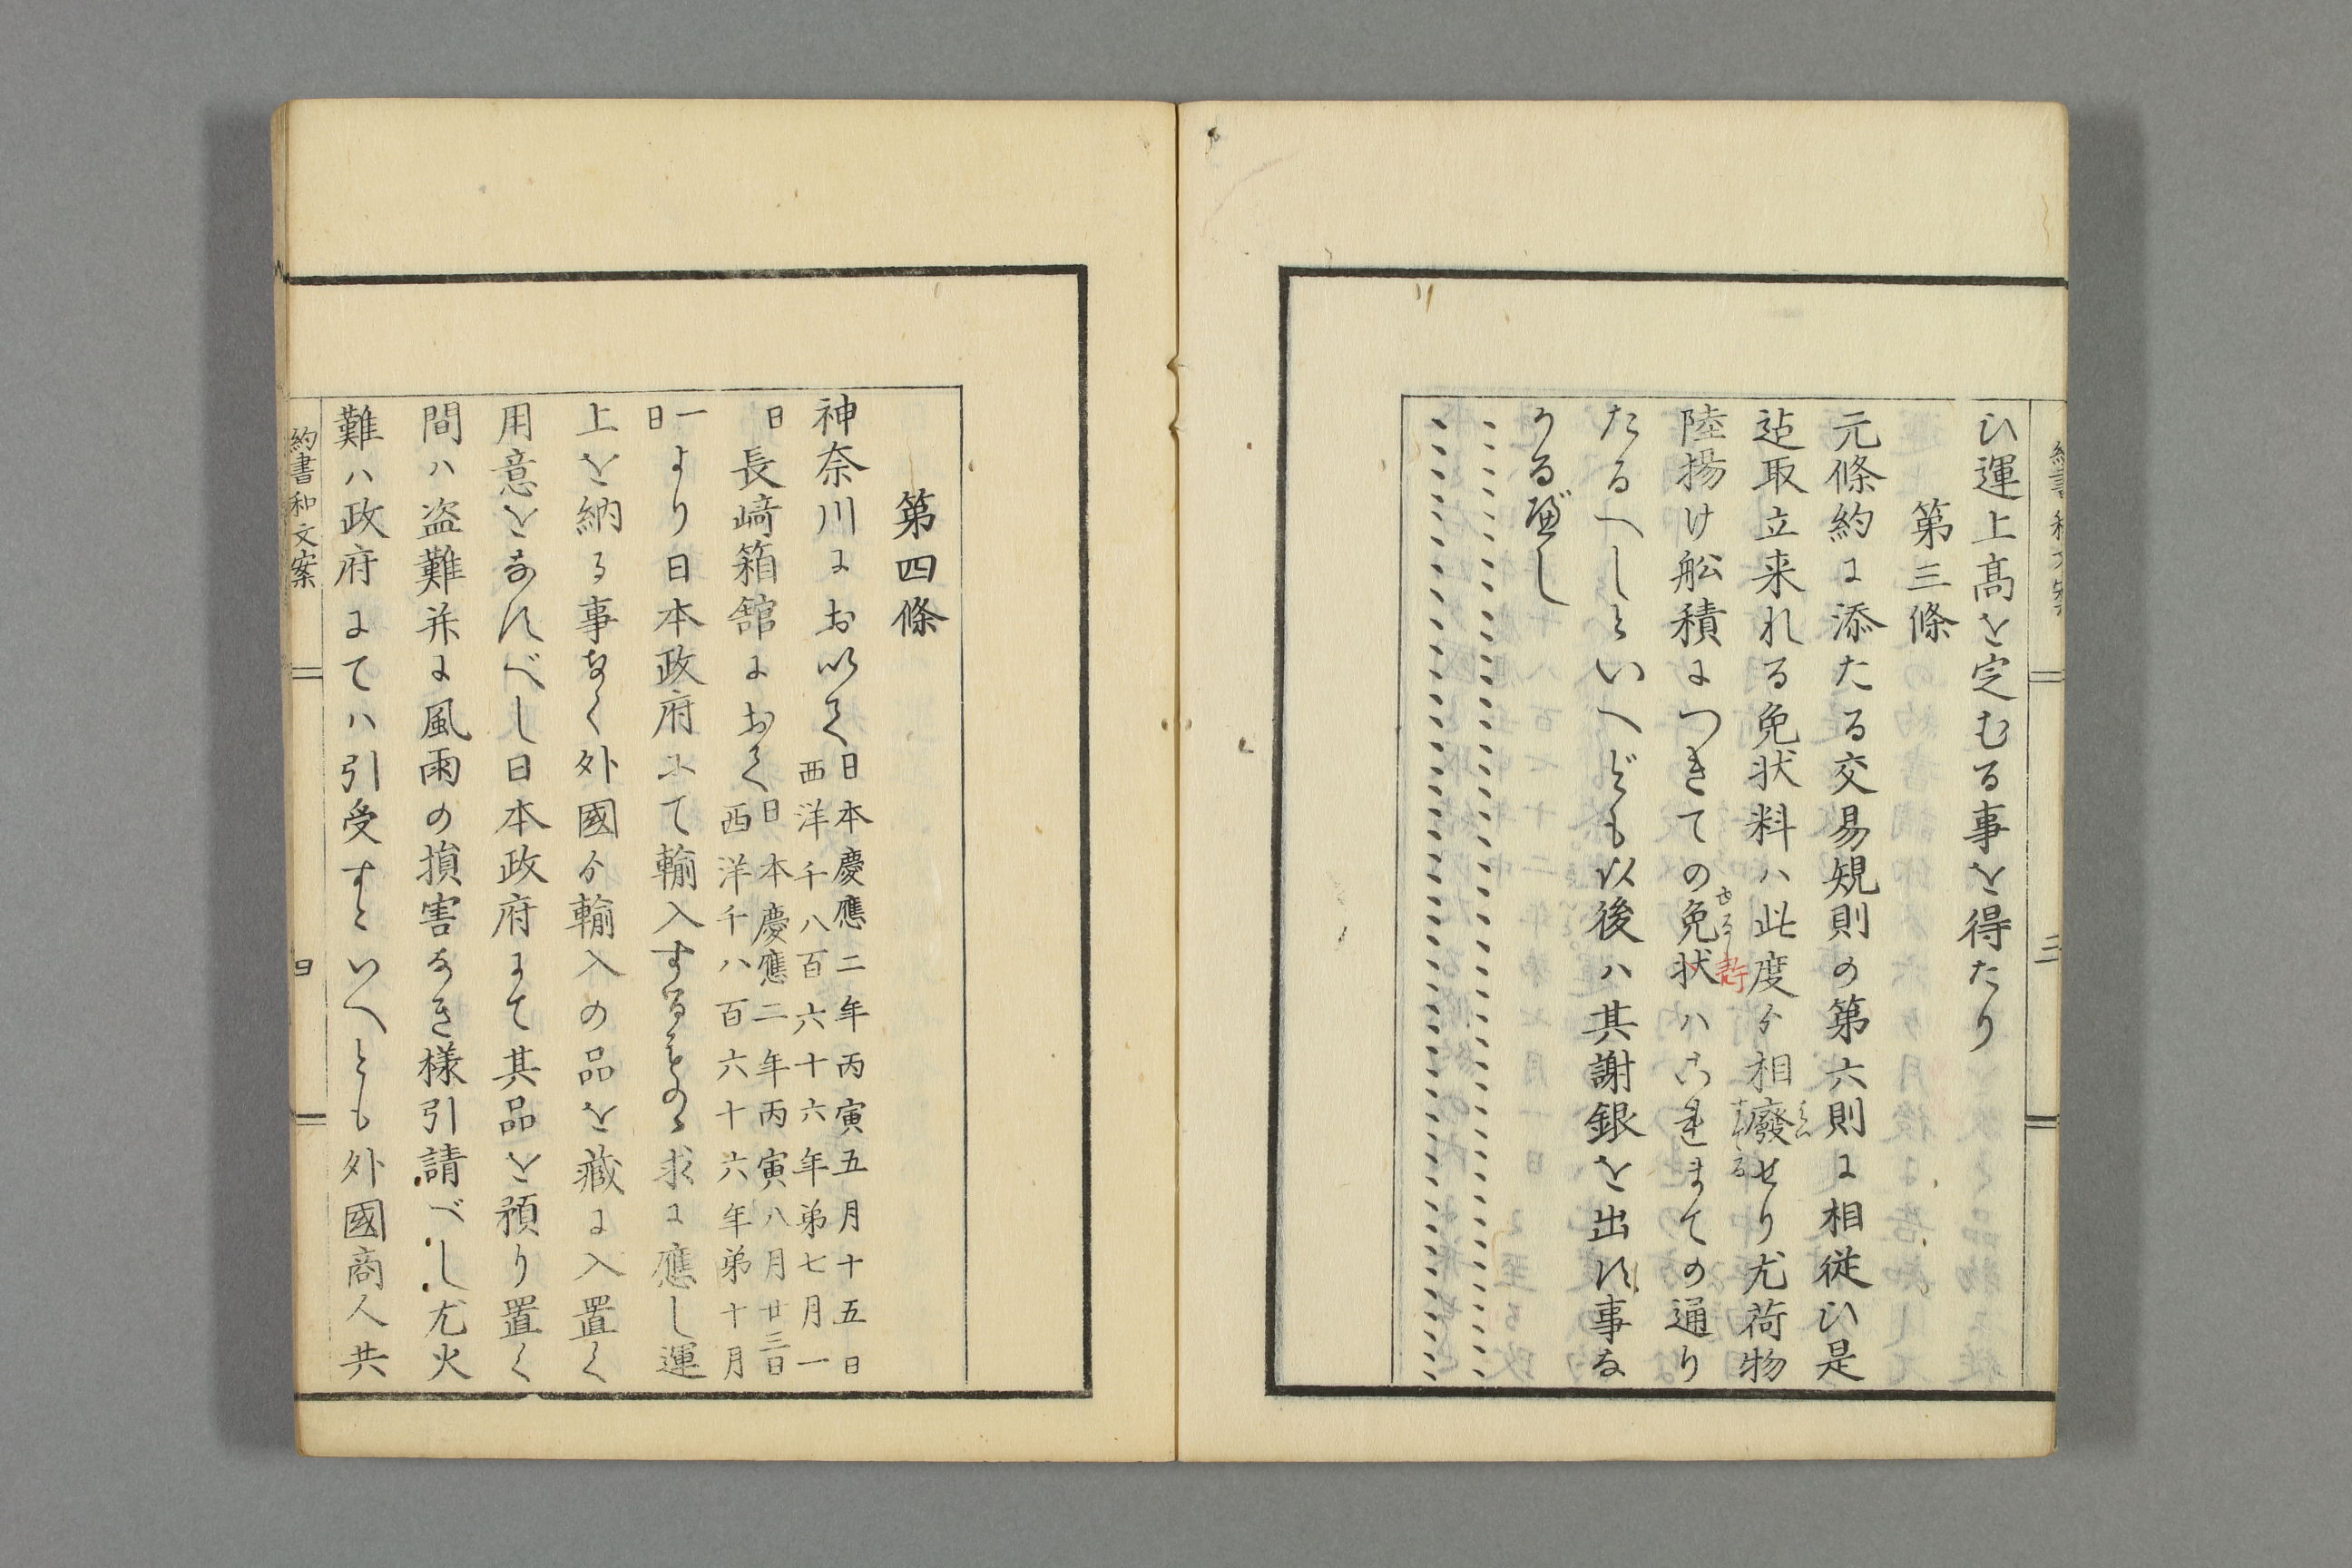 ひ運上髙を定むる事を得たり
第三條
元條約に添たる交易規則の第六則に相従ひ是
迠取立来れる免状料ハ此度ゟ相廢せり尤荷物
陸揚け舩積につきての免状ハこれまての通り
たるへしといへども以後ハ其謝銀を出す事な
かるべし
第四條
神奈川におゐて日本慶應二年丙寅五月十五日
西洋千八百六十六年第七月一
日
長﨑箱舘におゐて日本慶應二年丙寅八月廿三日
西洋千八百六十六年第十月
一
日
より日本政府にて輸入するもの、求に應し運
上を納る事なく外國ゟ輸入の品を藏に入置く
用意をなすべし日本政府にて其品を預り置く
間ハ盗難并に風雨の損害なき様引請べし尤火
難ハ政府にてハ引受すといへとも外國商人共
約書和文案
四